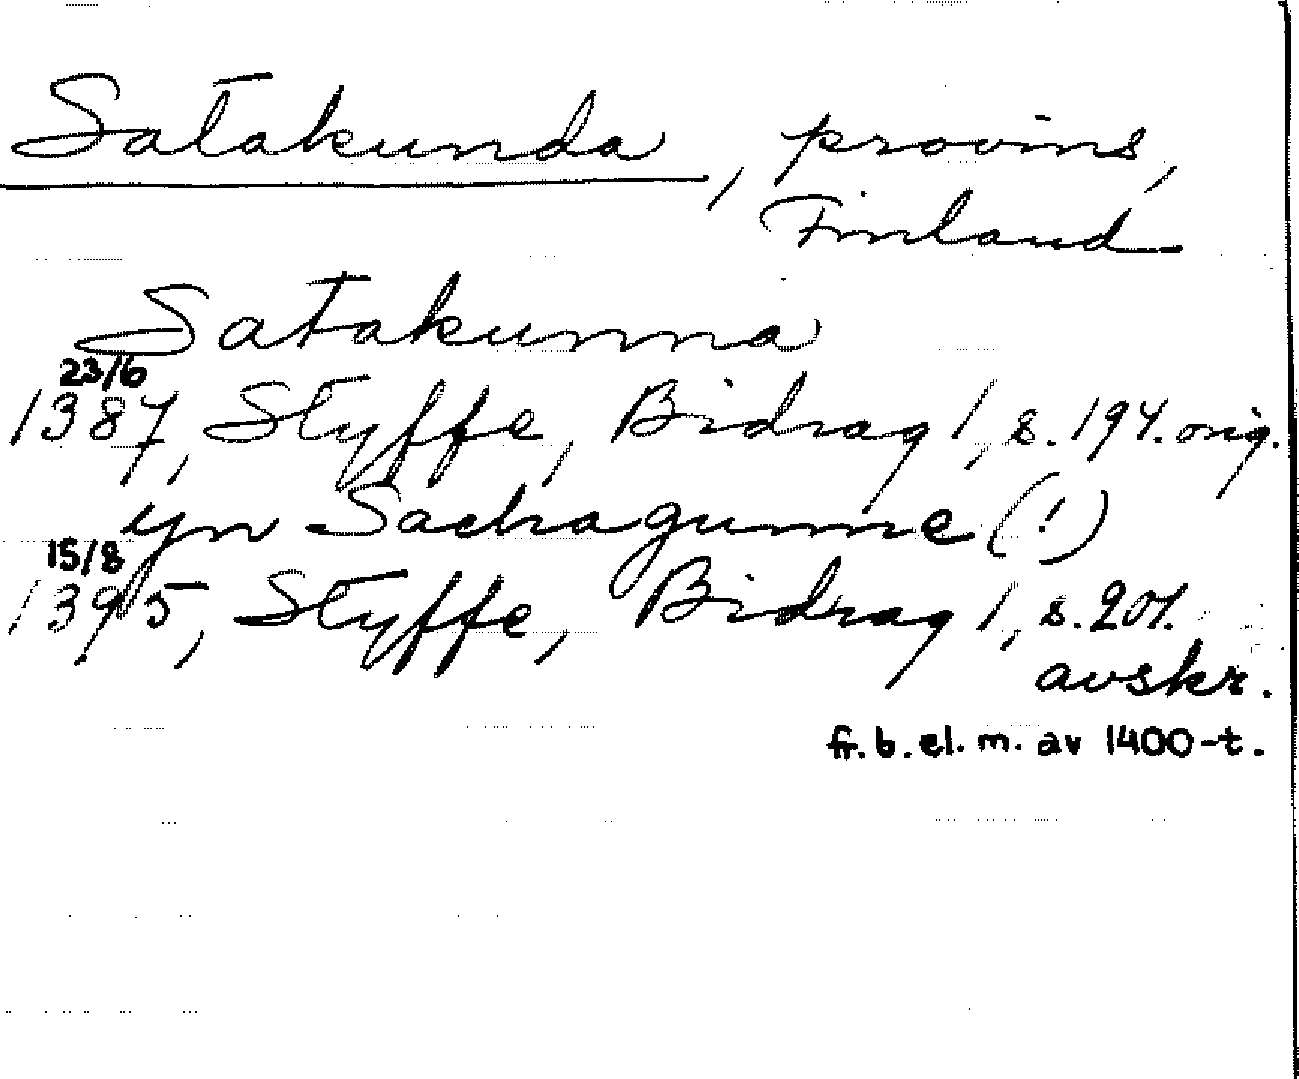 Satakunda, provins,
Finland
Satakunna
23/6
1387, Styffe, Bidrag 1, s. 194. orig.
yn Sachagunne (!)
15/8
1395, Styffe, Bidrag 1, s. 201.
avskr.
fr. b. el. m. av 1400-t.